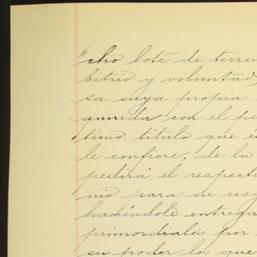 "cho lote de terren
bitrio y voluntad,
sa suya propia
quirida con el pe
timo título que é
le confiere, de lo
pedirá el respecti
nio para su resg
haciéndole entrega
primordiales por
su poder los que